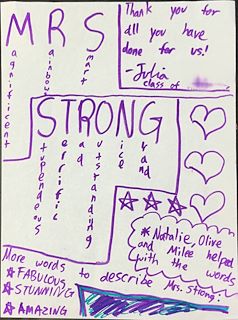 MRS
agnificent
ainbow
mart
Thank you for
all you have
done for us!
-Julia
class of
STRONG
tupendous
errific
ad
utstanding
ice
rand
*Natalie, Olive
and Milee helped
with the words
More words
to describe
Mrs. Strong:
FABULOUS
STUNNING
AMAZING